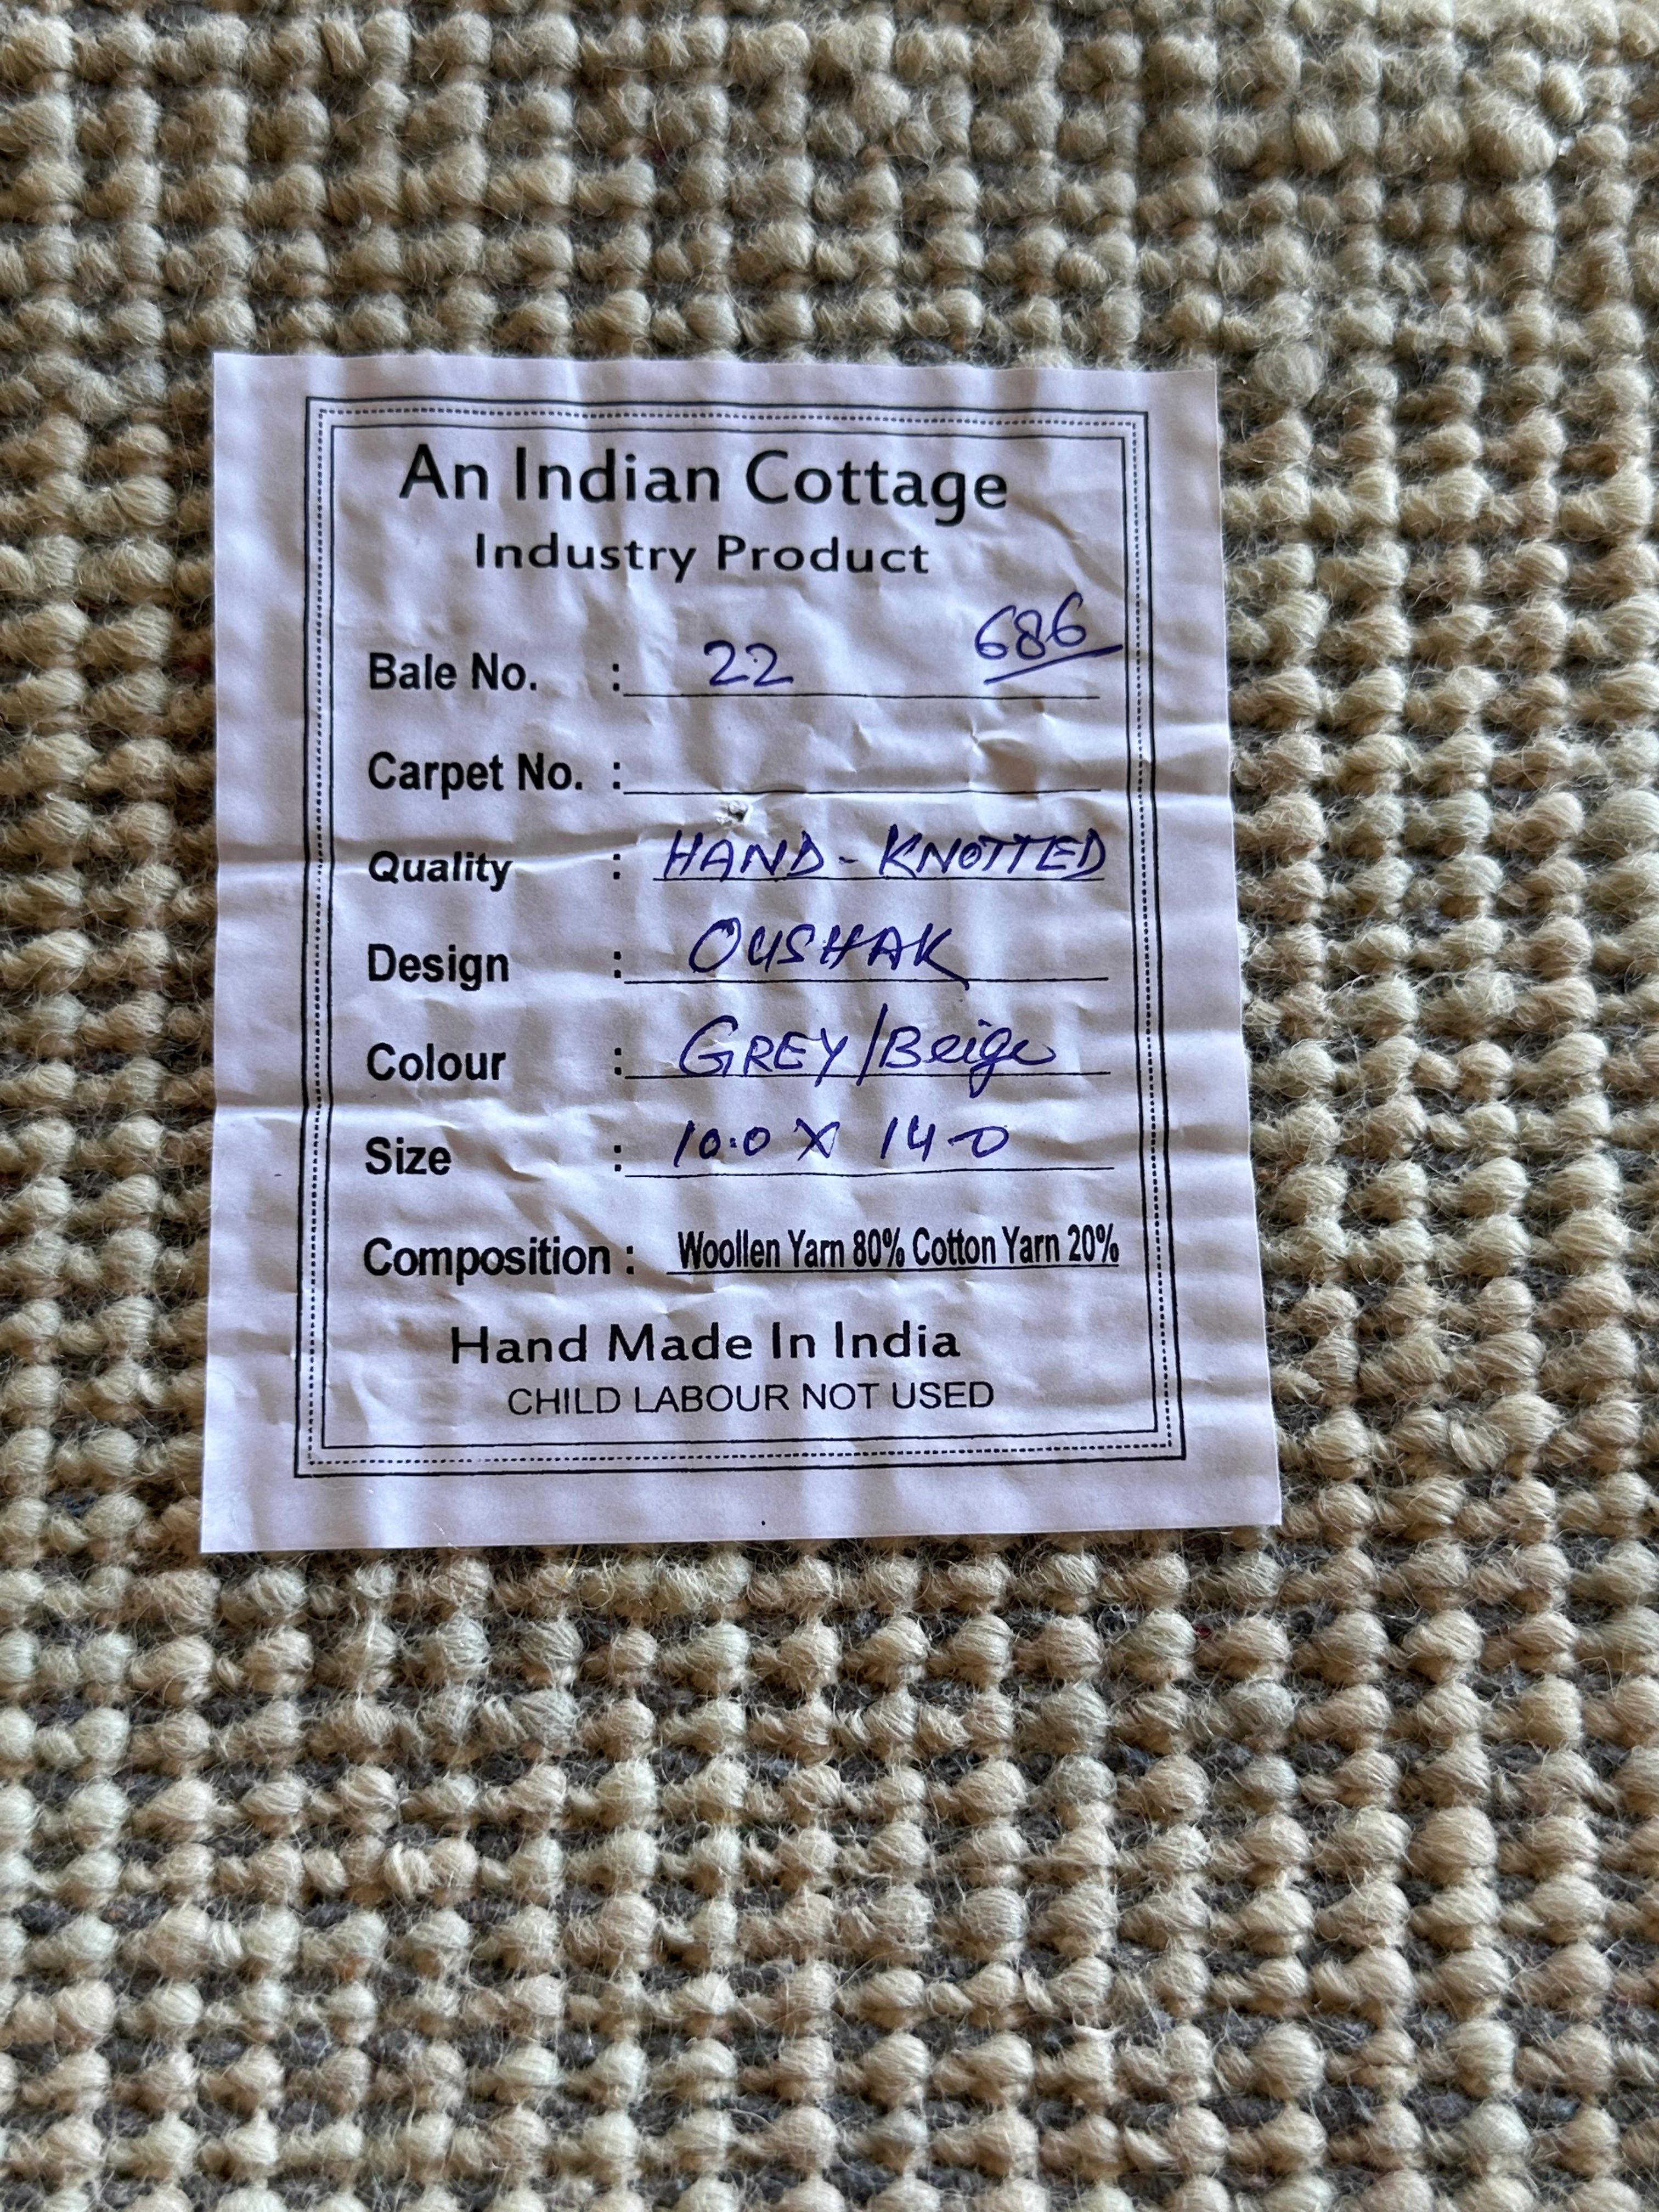 An Indian Cottage
Industry Product
Bale No. : 22 686
Carpet No. :
Quality : HAND-KNOTTED
Design : OUSHAK
Colour : GREY/Beige
Size : 10.0 X 14-0
Composition : Woollen Yarn 80% Cotton Yarn 20%
Hand Made In India
CHILD LABOUR NOT USED